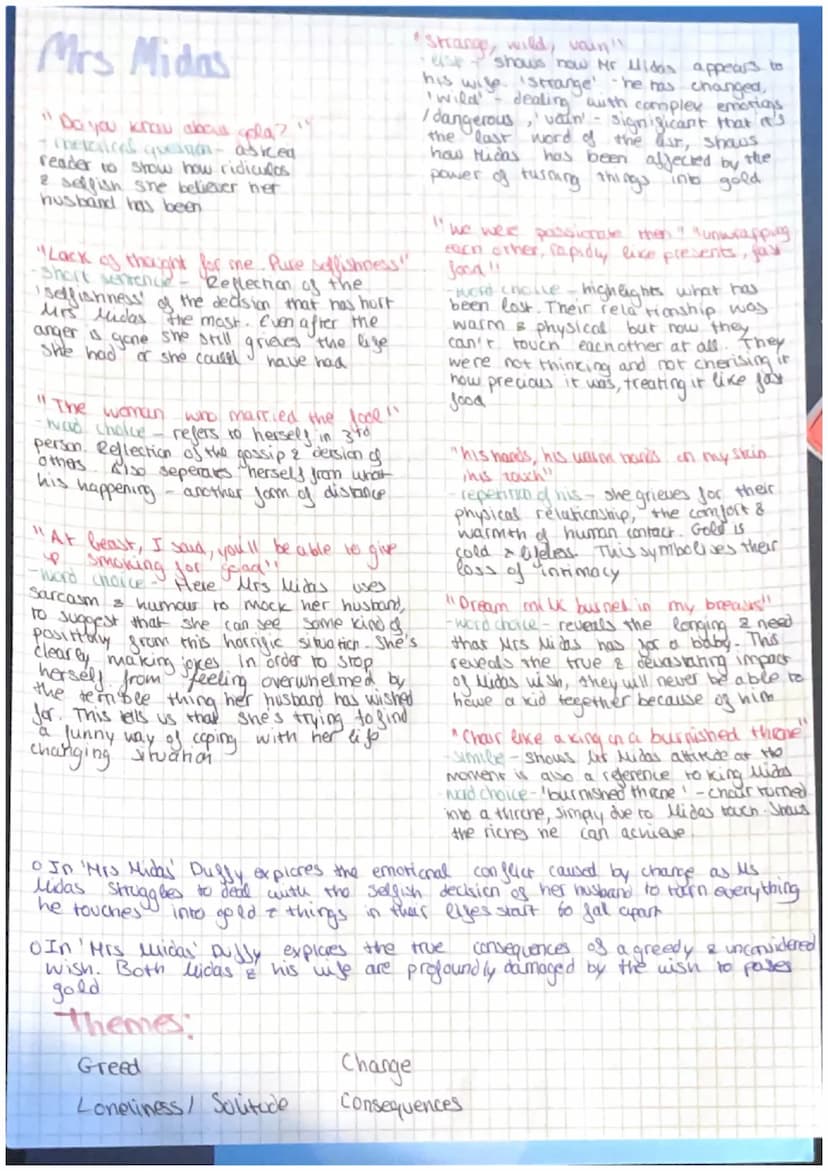 Mrs Midas
"Do you know about gold?"
- rhetorical question - asked
reader to show how ridiculos
& selfish she believer her
husband has been
"Lack of thought for me. Pure selfishness"
- Short sentence - Reflection of the
'selfishness' of the decision that has hurt
Mrs Midas the most. Even after the
anger is gone she still grieves the life
she had or she could have had
"The woman who married the fool"
- word choice - refers to herself in 3rd
person. Reflection of the gossip & derision of
others. Also seperates herself from what
his happening - another form of distance
"At least, I said, you'll be able to give
up smoking for good"
- word choice - Here Mrs Midas uses
sarcasm & humour to mock her husband,
to suggest that she can see some kind of
positivity from this horrific situation. She's
clearly making jokes in order to stop
herself from feeling overwhelmed by
the terrible thing her husband has wished
for. This tells us that she's trying to find
a funny way of coping with her life
changing situation
"Strange, wild, vain"
- list - shows how Mr Midas appears to
his wife. 'Strange' - he has changed,
'wild' - dealing with complex emotions
/dangerous, 'vain' - significant that it's
the last word of the list, shows
how Midas has been affected by the
power of turning things into gold
"we were passionate then" "unwrapping
each other, rapidly like presents, fast
food"
- word choice - highlights what has
been lost. Their relationship was
warm & physical but now they
can't touch eachother at all. They
were not thinking and not cherising it
how precious it was, treating it like fast
food
"his hands, his warm hands on my skin
his touch"
- repetition of his - she grieves for their
physical relationship, the comfort &
warmth of human contact. Gold is
cold & lifeless. This symbolises their
loss of intimacy
"Dream milk burned in my breasts"
- word choice - reveals the longing & need
that Mrs Midas has for a baby. This
reveals the true & devastating impact
of Midas wish, they will never be able to
have a kid together because of him
"Chair like a king on a burnished throne"
- simile - shows Mr Midas attitude at the
moment is also a reference to king Midas
- word choice - 'burnished throne' - chair turned
into a throne, simply due to Midas touch. Shows
the riches he can achieve
o In 'Mrs Midas' Duffy explores the emotional conflict caused by change as Ms
Midas struggles to deal with the selfish decision of her husband to turn everything
he touches into gold & things in their lifes start to fal apart
o In 'Mrs Midas' Duffy explores the true consequences of a greedy & unconsidered
wish. Both Midas & his wife are profoundly damaged by the wish to poses
gold
Themes:
Greed Change
Loneliness / Solitude Consequences